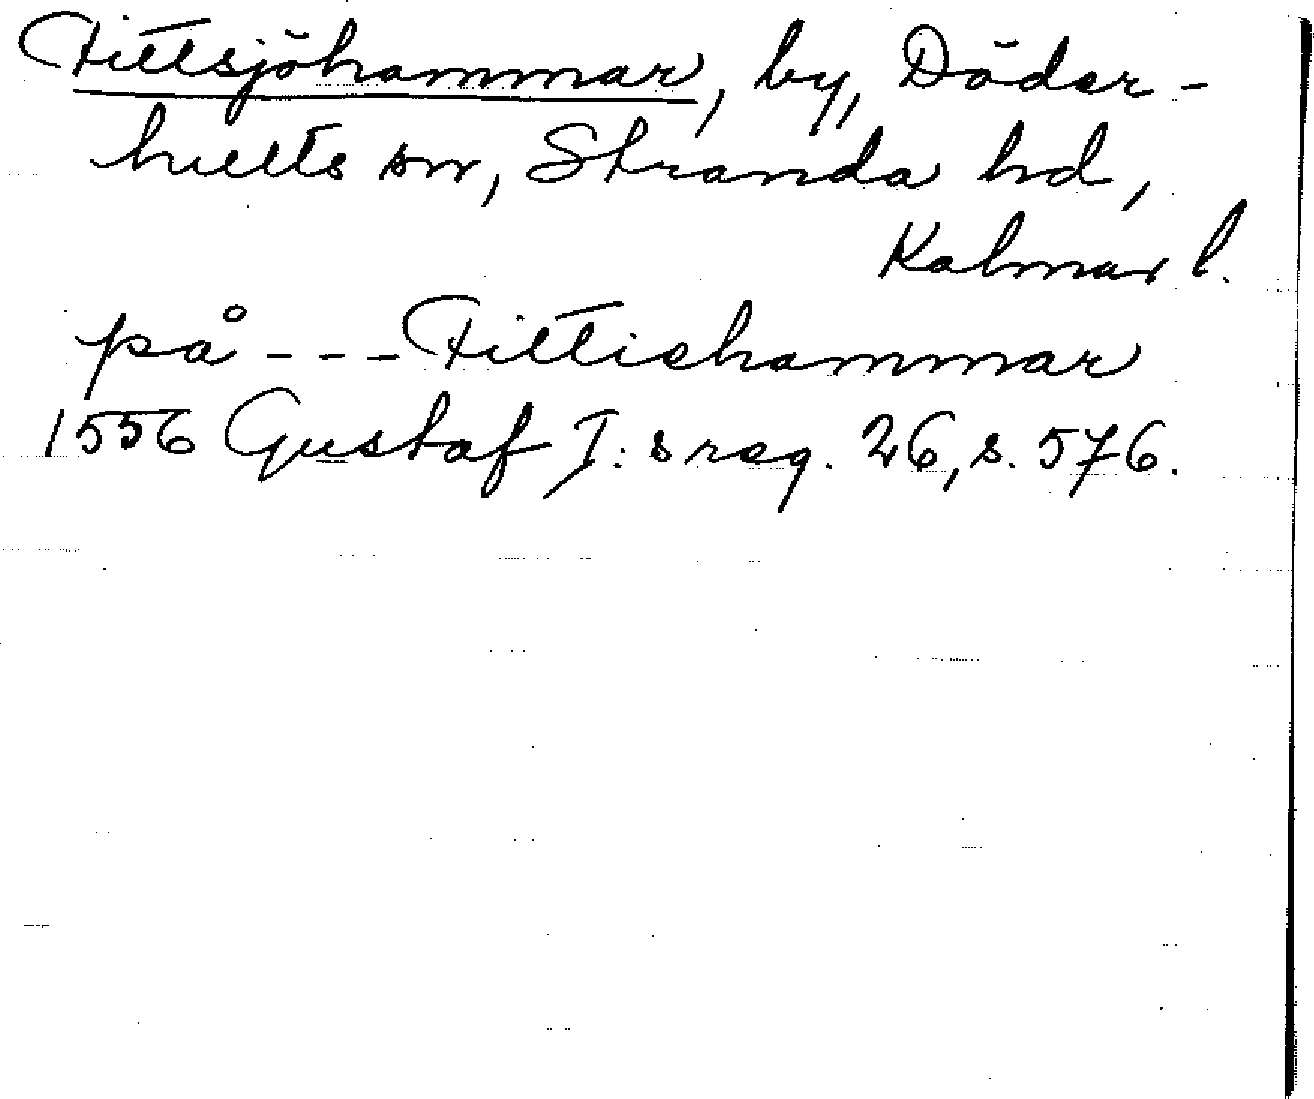 Fittsjöhammar, by, Döder-
hullts sn, Stranda hd,
Kalmar l.
på --- Fittishammar
1556 Gustaf I:s reg. 26, s. 576.